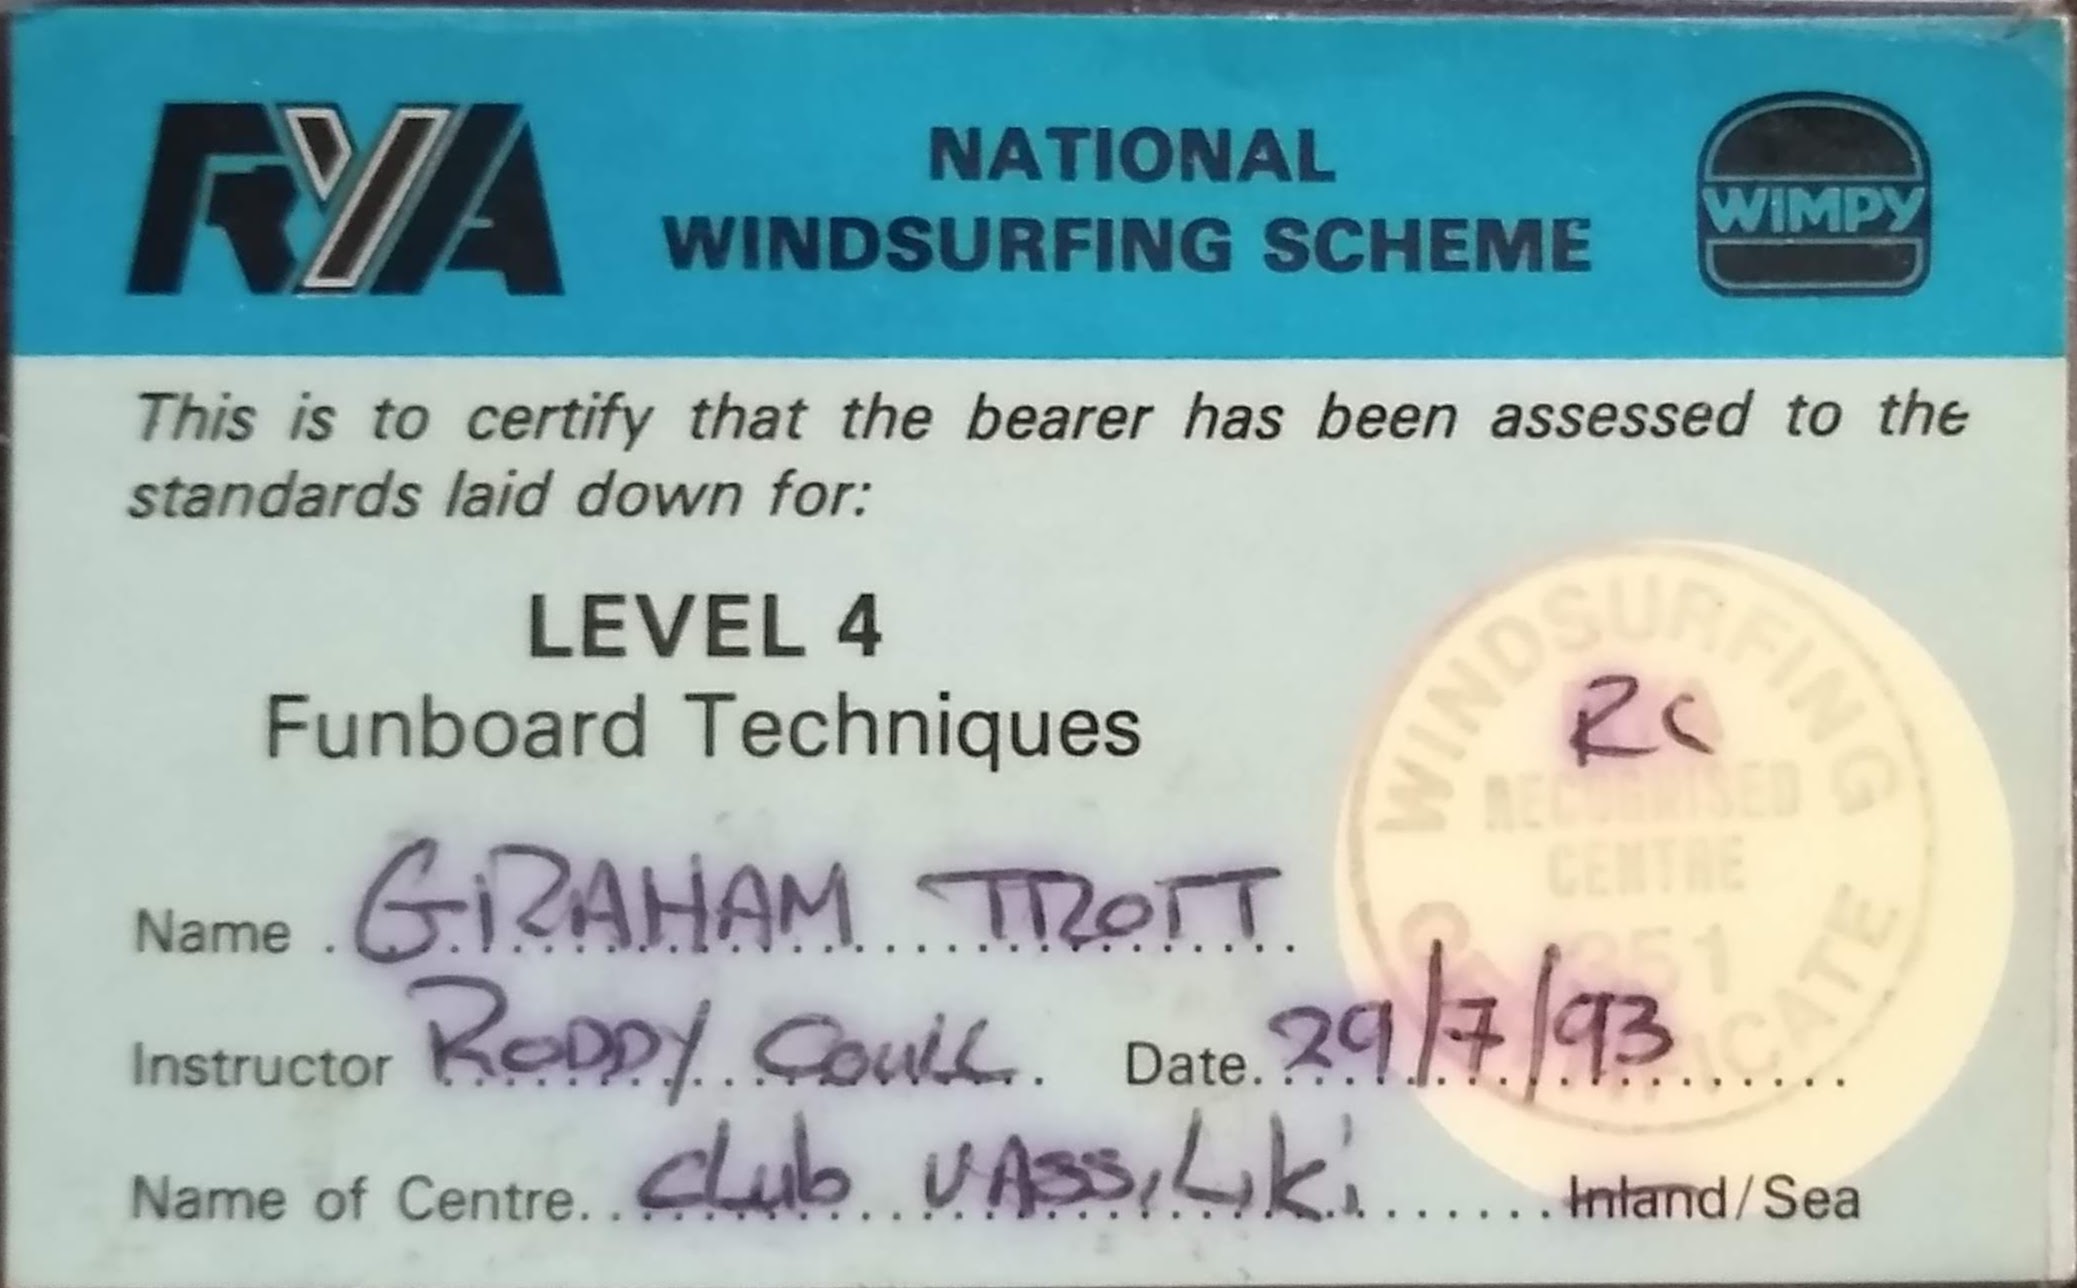 RYA
NATIONAL
WINDSURFING SCHEME
WIMPY
This is to certify that the bearer has been assessed to the
standards laid down for:
LEVEL 4
Funboard Techniques
WINDSURFING
RC
RECOGNISED
CENTRE
351
CERTIFICATE
Name . GRAHAM TROTT
Instructor RODDY COULL Date. 29/7/93
Name of Centre. Club VASSiLiki Inland/Sea